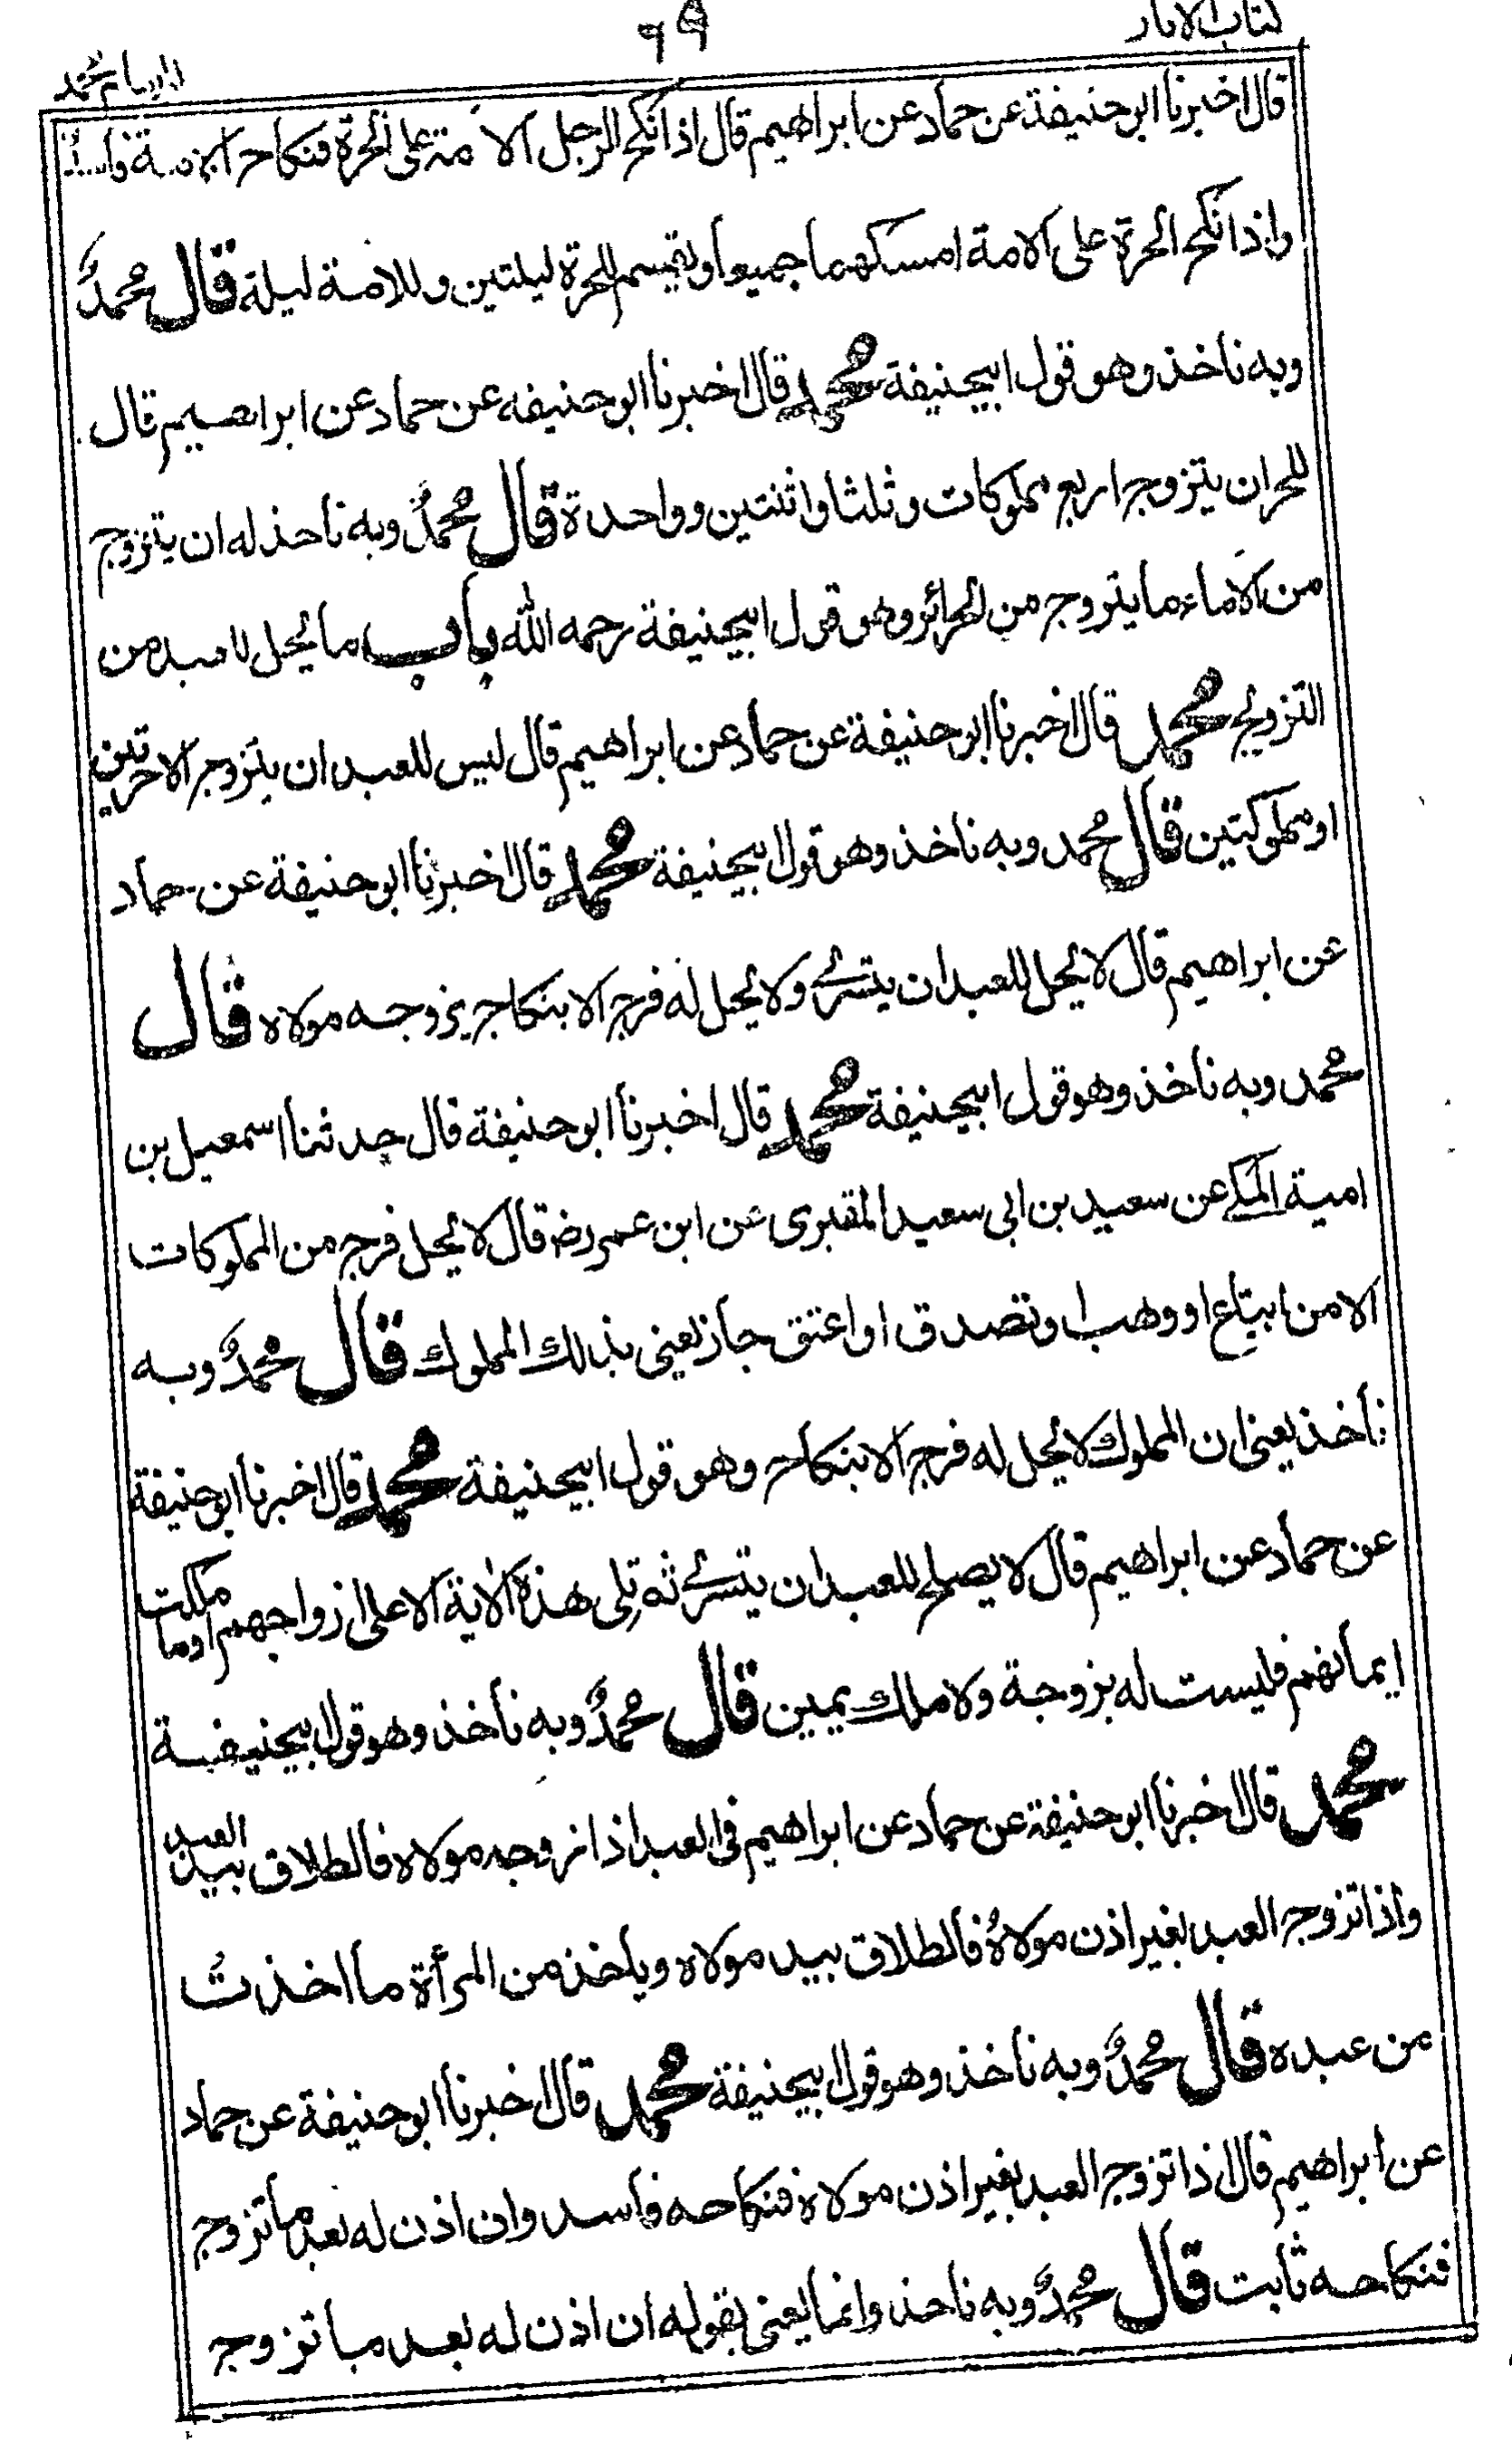 كتاب الآثار
٦٩
للامام محمد
قال اخبرنا ابو حنيفة عن حماد عن ابراهيم قال اذا نكح الرجل الامة على الحرة فنكاح الامة فاسد
واذا نكح الحرة على الامة امسكهما جميعا ويقسم للحرة ليلتين وللامة ليلة قال محمدٌ
وبه ناخذ وهو قول ابيحنيفة محمد قال اخبرنا ابو حنيفه عن حماد عن ابراهيم قال
للحر ان يتزوج اربع مملوكات وثلثا واثنتين وواحدة قال محمدٌ وبه ناخذ له ان يتزوج
من الاماء ما يتزوج من الحرائر وهو قول ابيحنيفة رحمه الله باب ما يحل للعبد من
التزويج محمد قال اخبرنا ابو حنيفة عن حماد عن ابراهيم قال ليس للعبد ان يتزوج الا حرتين
او مملوكتين قال محمد وبه ناخذ وهو قول ابيحنيفة محمد قال اخبرنا ابو حنيفة عن حماد
عن ابراهيم قال لا يحل للعبد ان يتسرى ولا يحل له فرج الا بنكاح يزوجه مولاه قال
محمد وبه ناخذ وهو قول ابيحنيفة محمد قال اخبرنا ابو حنيفة قال حدثنا اسمعيل بن
امية المكى عن سعيد بن ابى سعيد المقبرى عن ابن عمر رض قال لا يحل فرج من المملوكات
الا من ابتاع او وهب او تصدق او اعتق جاز يعنى بذلك المملوك قال محمدٌ وبه
ناخذ يعنى ان المملوك لا يحل له فرج الا بنكاح وهو قول ابيحنيفة محمد قال اخبرنا ابو حنيفة
عن حماد عن ابراهيم قال لا يصلح للعبد ان يتسرى ثم تلى هذه الاية الا على ازواجهم او ما ملكت
ايمانهم فليست له بزوجة ولا ملك يمين قال محمدٌ وبه ناخذ وهو قول ابيحنيفة
محمد قال اخبرنا ابو حنيفة عن حماد عن ابراهيم فى العبد اذا زوجه مولاه فالطلاق بيد العبد
واذا تزوج العبد بغير اذن مولاهُ فالطلاق بيد مولاه وياخذ من المرأة ما اخذتُ
من عبده قال محمدٌ وبه ناخذ وهو قول ابيحنيفة محمد قال اخبرنا ابو حنيفة عن حماد
عن ابراهيم قال اذا تزوج العبد بغير اذن مولاه فنكاحه فاسد وان اذن له بعد ما تزوج
فنكاحه ثابت قال محمدٌ وبه ناخذ وانما يعنى بقوله ان اذن له بعد ما تزوج